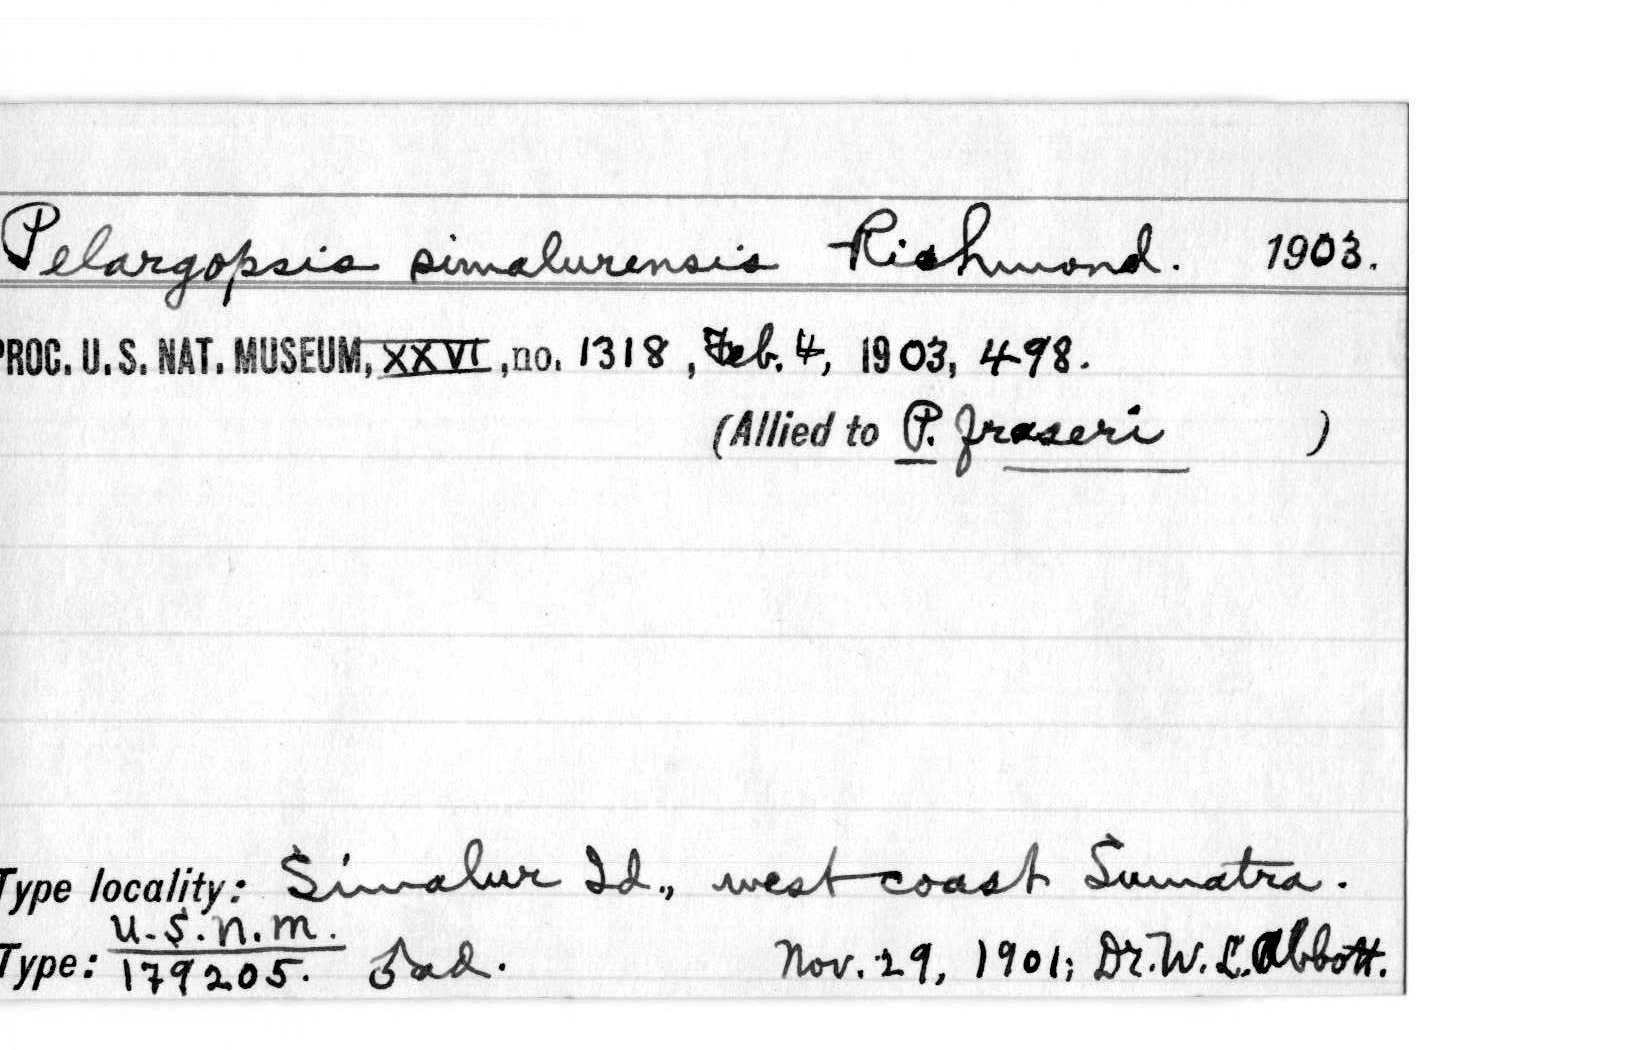 Pelargopsis simalurensis Richmond. 1903.
PROC. U. S. NAT. MUSEUM, XXVI, no. 1318, Feb. 4, 1903, 498.
(Allied to P. fraseri )
Type locality: Simalur Id., west coast Sumatra.
U.S.N.M.
Type: 179205. ♂ad. Nov. 29, 1901; Dr. W. L. Abbott.